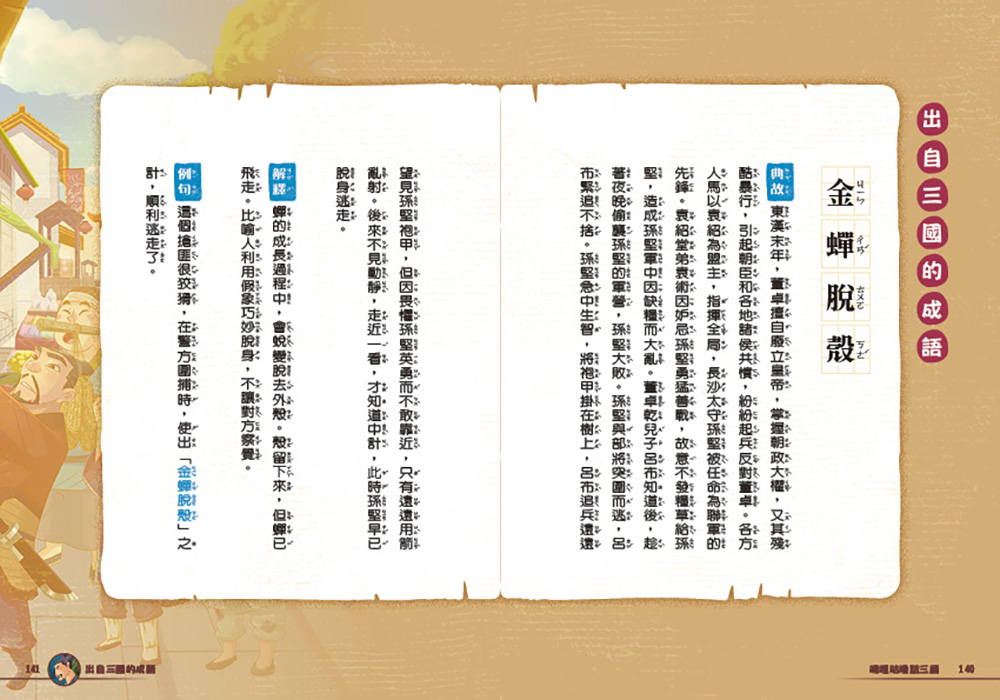 出自三國的成語
金蟬脫殼
ㄐㄧㄣ
ㄔㄢˊ
ㄊㄨㄛ
ㄑㄧㄠˋ
典故 東漢末年，董卓擅自廢立皇帝，掌握朝政大權，又其殘
酷暴行，引起朝臣和各地諸侯共憤，紛紛起兵反對董卓。各方
人馬以袁紹為盟主，指揮全局，長沙太守孫堅被任命為聯軍的
先鋒。袁紹堂弟袁術因妒忌孫堅勇猛善戰，故意不發糧草給孫
堅，造成孫堅軍中因缺糧而大亂。董卓乾兒子呂布知道後，趁
著夜晚偷襲孫堅的軍營，孫堅大敗。孫堅與部將突圍而逃，呂
布緊追不捨。孫堅急中生智，將袍甲掛在樹上，呂布追兵遠遠
望見孫堅袍甲，但因畏懼孫堅英勇而不敢靠近，只有遠遠用箭
亂射。後來不見動靜，走近一看，才知道中計，此時孫堅早已
脫身逃走。
解釋 蟬的成長過程中，會蛻變脫去外殼。殼留下來，但蟬已
飛走。比喻人利用假象巧妙脫身，不讓對方察覺。
例句 這個搶匪很狡猾，在警方圍捕時，使出「金蟬脫殼」之
計，順利逃走了。
嘰哩咕嚕話三國 140
141 出自三國的成語